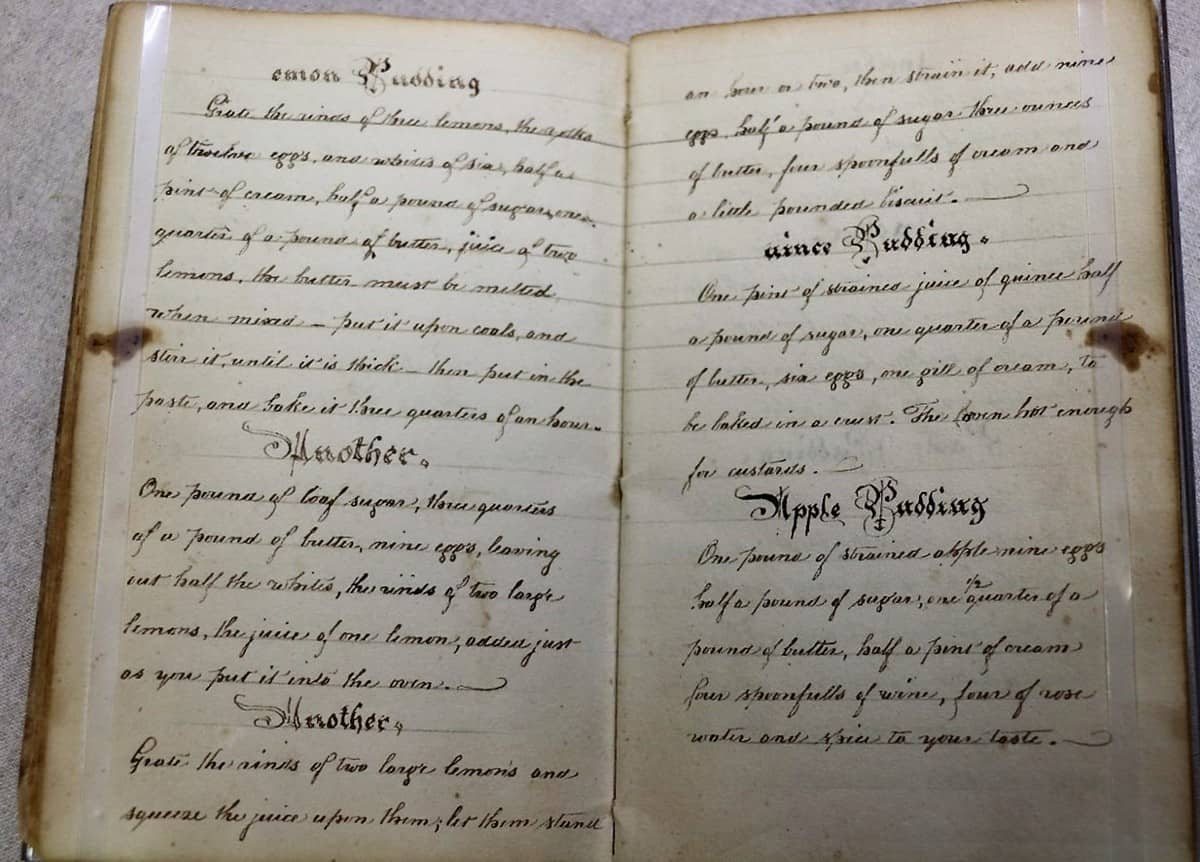 emon Pudding
Grate the rinds of three lemons, the yolks
of twelve eggs, and whites of six, half a
pint of cream, half a pound of sugar, one
quarter of a pound of butter, juice of two
lemons, the butter must be melted
when mixed – put it upon coals, and
stirr it, until it is thick – then put in the
paste, and bake it three quarters of an hour.
Another.
One pound of loaf sugar, three quarters
of a pound of butter, nine eggs, leaving
out half the whites, the rinds of two large
lemons, the juice of one lemon, added just
as you put it into the oven.
Another.
Grate the rinds of two large lemons and
squeeze the juice upon them; let them stand
an hour or two, then strain it, add nine
eggs, half a pound of sugar three ounces
of butter, four spoonfulls of cream and
a little pounded biscuit.
uince Pudding.
One pint of strained juice of quince half
a pound of sugar, one quarter of a pound
of butter, six eggs, one gill of cream, to
be baked in a crust. The oven hot enough
for custards.
Apple Pudding
One pound of strained apple nine eggs
half a pound of sugar, one 1/2 quarter of a
pound of butter, half a pint of cream
four spoonfulls of wine, four of rose
water and spice to your taste.